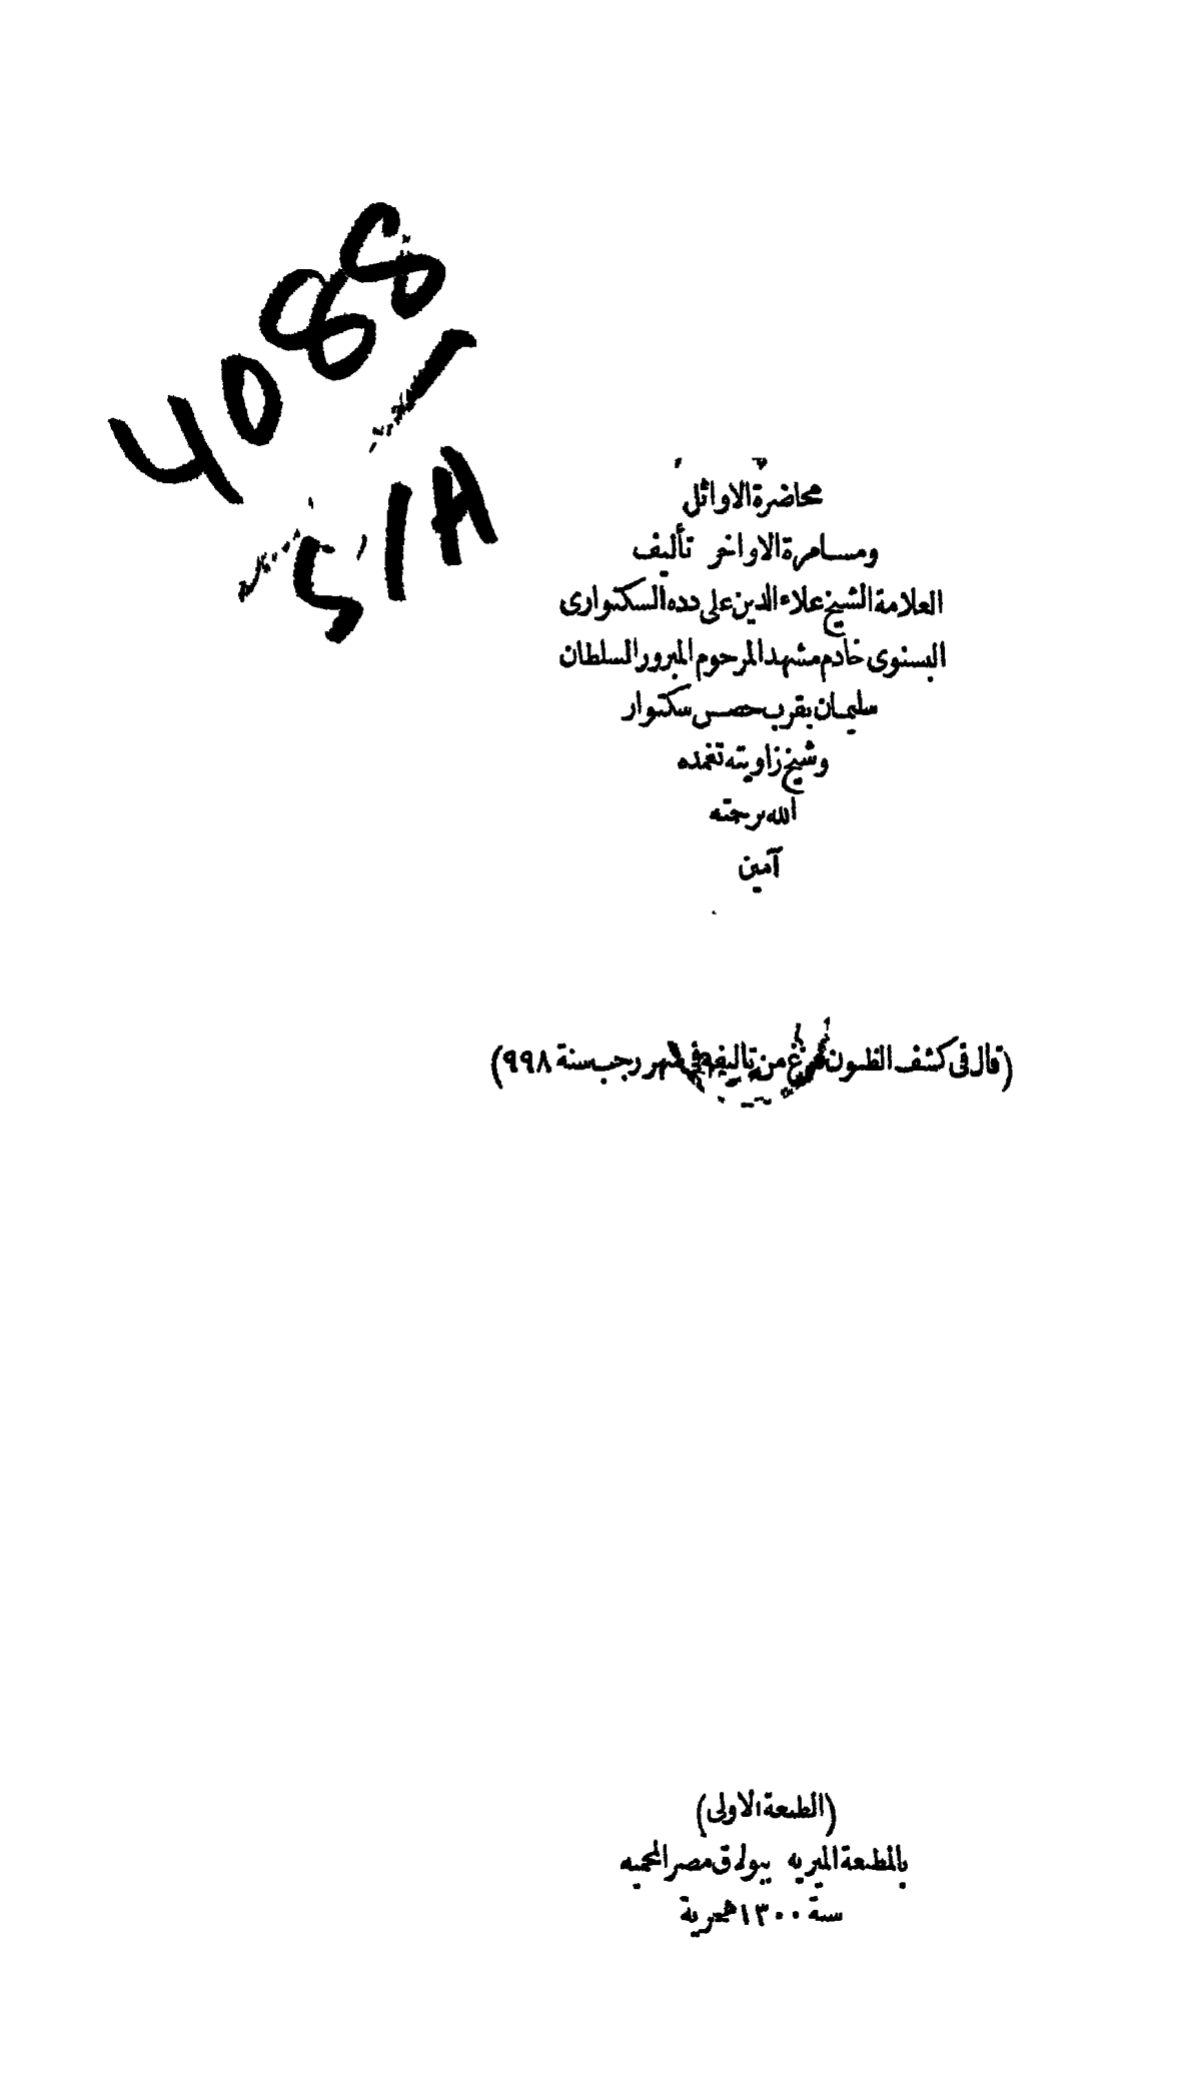 4088
51A
محاضرة الاوائل
ومسامرة الاواخر تأليف
العلامة الشيخ علاء الدين على دده السكتوارى
البسنوى خادم مشهد المرحوم المبرور السلطان
سليمان بقرب حصن سكتوار
وشيخ زاويته تغمده
الله برحمته
آمين
(قال فى كشف الظنون فرغ من تاليفه فى شهر رجب سنة ٩٩٨)
(الطبعة الاولى)
بالمطبعة الميريه ببولاق مصر المحميه
سنة ١٣٠٠ هجرية